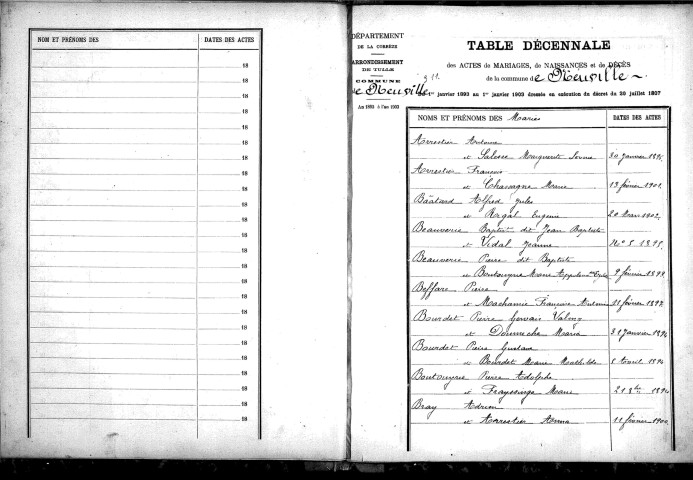 NOM ET PRÉNOMS DES
DATES DES ACTES
18
18
18
18
18
18
18
18
18
18
18
18
18
18
18
18
18
18
18
18
DÉPARTEMENT
DE LA CORRÈZE
ARRONDISSEMENT
DE TULLE
COMMUNE
de Neuville
An 1893 à l'an 1903
TABLE DÉCENNALE
des ACTES de MARIAGES, de NAISSANCES et de DÉCÈS
de la commune de Neuville
du 1er janvier 1893 au 1er janvier 1903 dressée en exécution du décret du 20 juillet 1807
NOMS ET PRÉNOMS DES Mariés
DATES DES ACTES
Arrestier Antoine
et Salesse Marguerite 30 janvier
Arrestier François
et Chassagne Marie 13 février 1901
Alfred Jules
et Rigal Eugénie 20 Mars 1902
Beauverie Baptiste dit Jean Baptiste
et Vidal Jeanne
Beauverie Pierre dit Baptiste
et Boutouyrie Marie 9 février
Beffare Pierre
et Machamie Françoise février
Bourdet Pierre Gervais
et Maria 31 janvier 1894
Bourdet Pierre Gustave
et Bourdet Marie Mathilde avril 1894
Boutouyrie Pierre Adolphe
et Frayssinge Marie 1894
Bray Adrien
et Arrestier Anna 11 février 1900